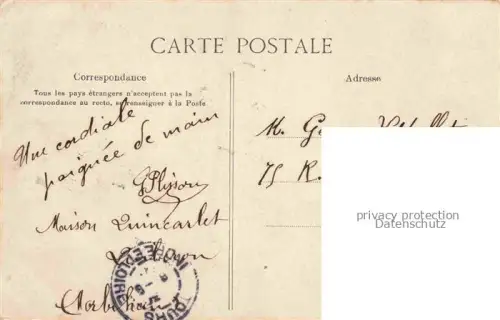 CARTE POSTALE
Correspondance
Tous les pays étrangers n'acceptent pas la
correspondance au recto, se renseigner à la Poste.
Adresse
Une cordiale
poignée de main
GPlisson
Maison Quincarlet
M. Ge
75 R.
privacy protection
Datenschutz
TOURS
INDRE-ET-LOIRE